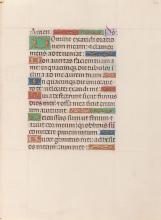 Amen. Ps
Domine exaudi oratio
nem meam: et clamor
meus ad te veniat.
Non avertas faciem tuam a me
in quacunque die tribulor in
clina ad me aurem tuam.
In quacunque die invocavero
te velociter exaudi me.
Quia defecerunt sicut fumus
dies mei: et ossa mea sicut
cremium aruerunt.
cor meum: quia oblitus sum
comedere panem meum.
A voce gemitus mei: adhe
sit os meum carni mee.